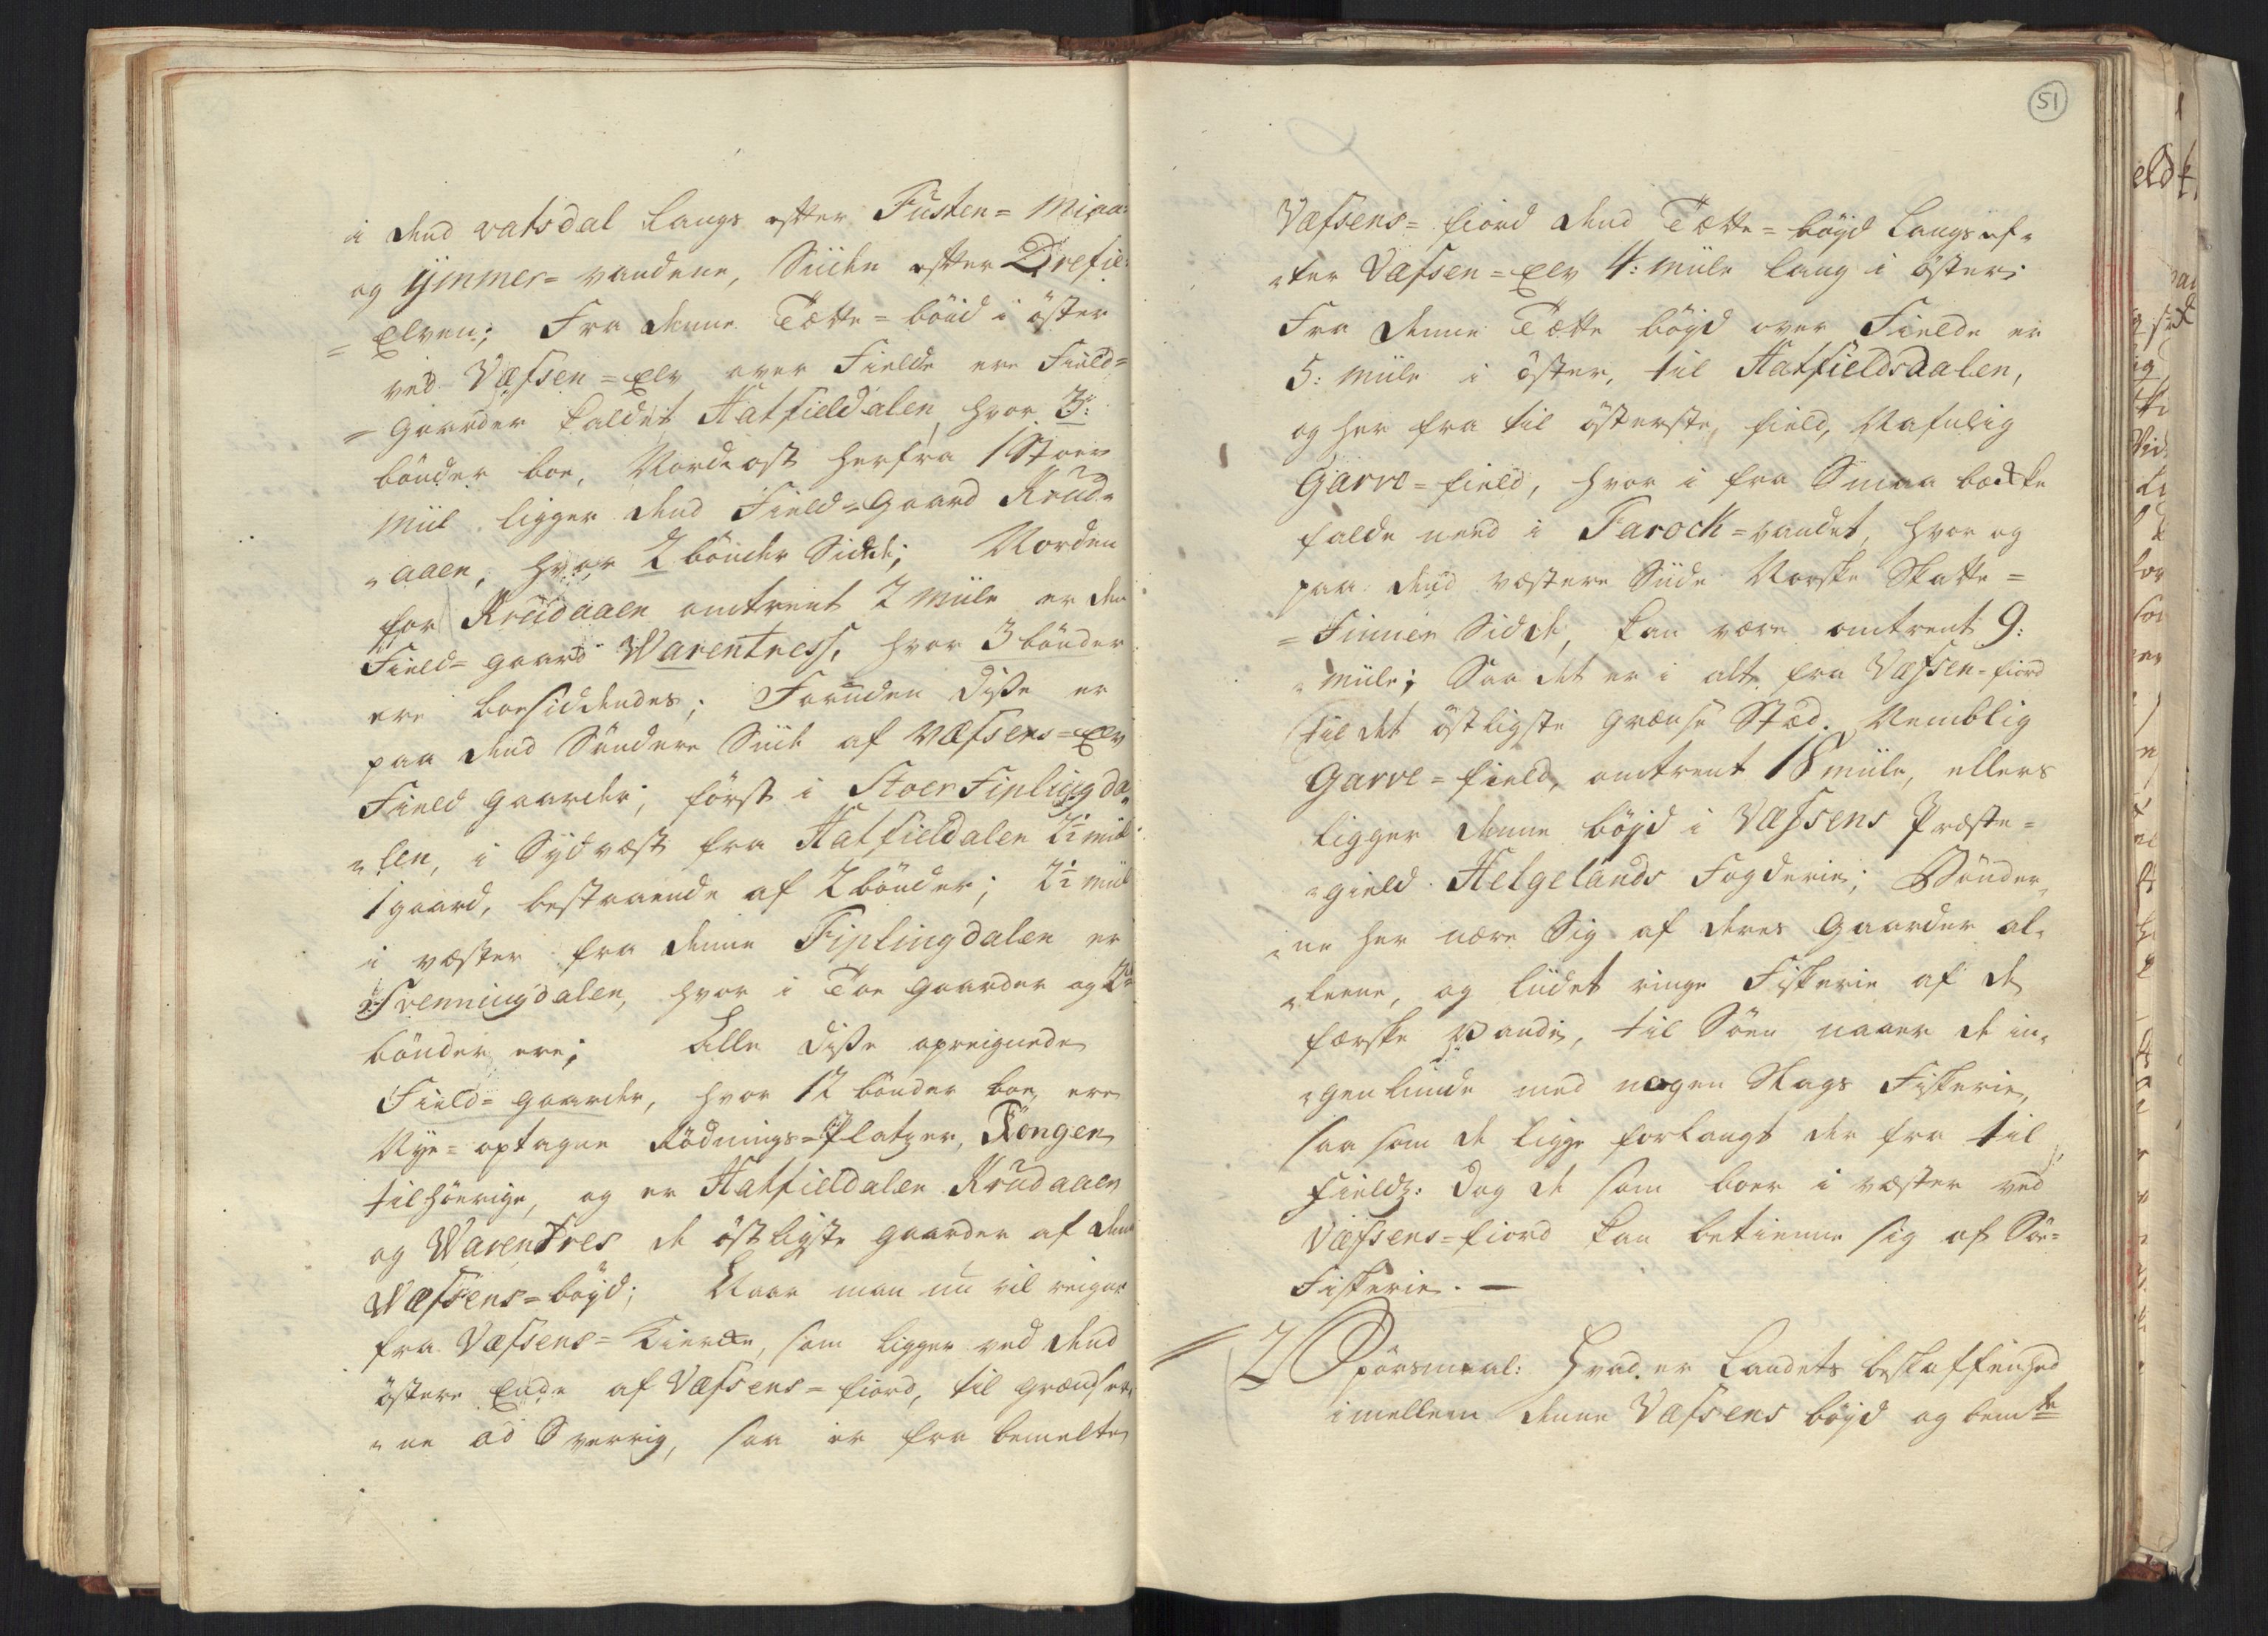 i dend vatsdal langs effter Fusten= Miaa=
og ÿmmer= vandene, Siiden effter Drefie=
= Elven; Fra denne Tætte= böiid i öster
ved Væfsen=Elv over Fielde ere Field=
= gaarder kaldet Hatfieldalen, hvor 3:
bönder boe, Nordost herfra 1 Stoer
Miil ligger dend Field=gaard Krud=
=aaen, hvor 2 bönder Sidde; Norden
for Krudaaen omtrent 2 Miile er den
Field=gaard Warentress, hvor 3 bönder
ere boesiddendes; Foruden diße er
paa dend Söndere Siide af Væfsens=Elv
Field gaarder, först i Stoer Fiplingda=
=len, i Sydvæst fra Hatfieldalen 2½ miil
1 gaard, bestaaende af 2 bönder; 2½ miil
i væster fra denne Fiplingdalen er
Svenningdalen, hvor i Toe gaarder og 2de
bönder ere; Alle diße opreignede
Field=gaarder, hvor 12 bönder boe, ere
Nye=optagne Rödnings=Platzer, Kongen
tilhörige, og er Hatfieldalen Krudaaen
og Warentres de östligste gaarder af den
Wæfsens=böyd; Naar man nu vil reigne
fra Væfsens=Kiercke, som ligger ved dend
östere Ende af Væfsens=fiord, til grændser=
=ne ad Sverrig, saa er fra bemelte
51
Væfsens=fiord dend Tætte=böyd langs ef=
=ter Væfsen=Elv 4: Miile lang i öster;
Fra denne Tætte böyd over Fielde er
5: Miile i öster, til Hatfieldsdalen,
og her fra til österste, field, Nafnlig
Garve=field, hvor i fra Smaa bække
falde need i Farock=vandet, hvor og
paa dend væstere Siide Norske Skatte=
=Finner Sidde, kan være omtrent 9:
=miile; Saa det er i alt fra Væfsen=fiord
til det östligste grændse Stæd. Nemblig
Garve=field, omtrent 18 miile, ellers
ligger denne böyd i Væfsens Præste=
=gield Helgelands Fogderie; Bönder=
=ne her nære Sig af deres gaarder al=
=leene, og liidet ringe Fiskerie af de
færske Vande, til Söen naaer de in=
=genlunde med nogen Slags Fiskerie,
saa som de ligge forlangt der fra til
fieldz: Dog de som boer i væster ved
Væfsens=fiord kan betienne sig af Söe=
Fiskerie. —
2 Spörsmaal: Hvad er Landets beskaffenhed
imellem denne Væfsens böyd og bemte